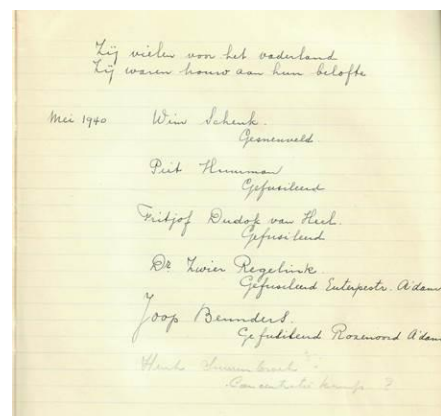 Zij vielen voor het vaderland
Zij waren trouw aan hun belofte
Mei 1940 Wim Schenk.
Gesneuveld
Piet
Gefusileerd
Fritjof Dudok van Heel.
Gefusileerd
Dr Zwier Regelink.
Gefusileerd Euterpestr. A'dam
Joop
Gefusileerd Rozenoord A'dam
Henk
Concentratie kamp ?